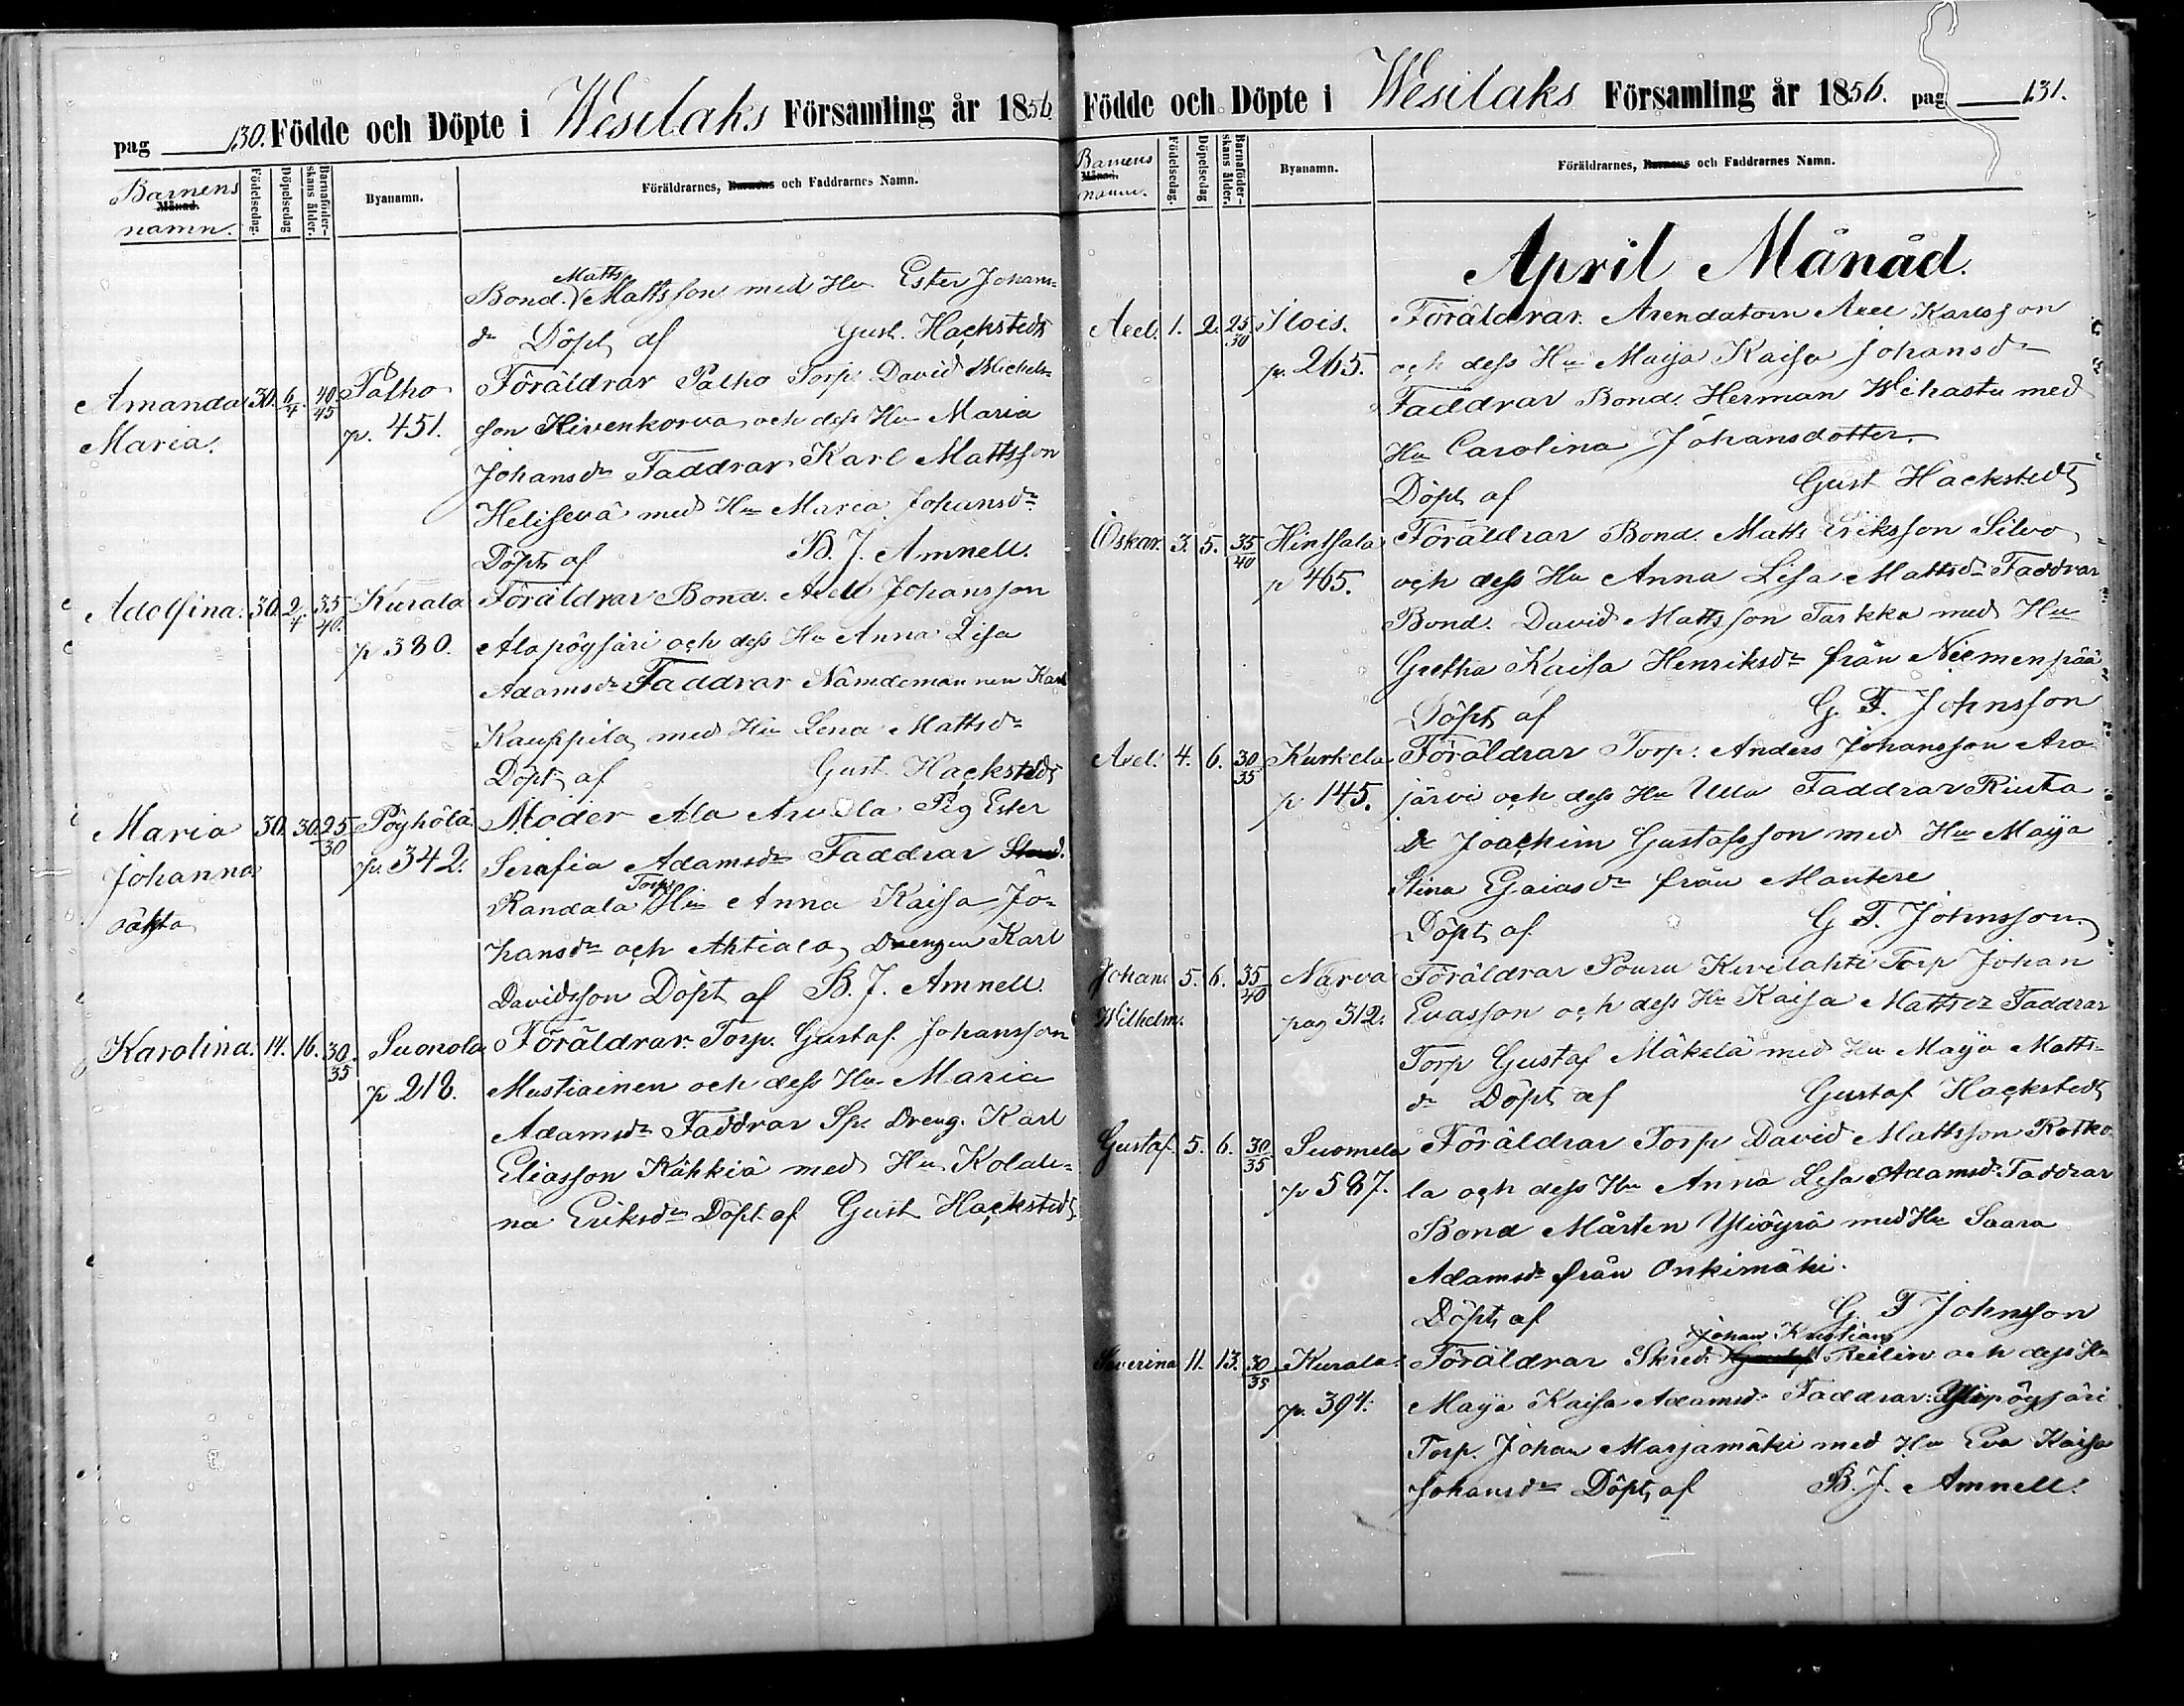 pag 130. Födde och Döpte i Wesilaks Församling år 1856
Barnens
Månad.
namn.
Födelsedag.
Döpelsedag
Barnaföder-
skans ålder.
Byanamn.
Föräldrarnes, Barnens och Faddrarnes Namn.
Matts
Bond. Mattsson med Hu Ester Johans-
dr Döpt af Gust. Hackstedt
Amanda 30. 6/4 40/45 Palho Föräldrar Palho Torp. David Michels-
Maria. p. 451. son Hivenkorva och dess Hu Maria
Johansdr Faddrar Karl Mattsson
Helisevä med Hu Maria Johansdr
Döpt af B. J. Amnell.
Adolfina. 30. 2/4 35/40. Kurala Föräldrar Bond. Axel Johansson
p. 380. Alapöysäri och dess Hu Anna Lisa
Adamsdr Faddrar Nämdemannen Karl
Kauppila med Hu Lena Mattsdr
Döpt af Gust. Hackstedt
Maria 30. 30. 25/30 Pöyhölä Moder Ala Arvela Pig Ester
Johanna p. 342. Serafia Adamsdr Faddrar
oäkta Randala Torp. Hu Anna Kaisa Jo-
hansdr och Ahtiala Drengen Karl
Davidsson Döpt af B. J. Amnell.
Karolina. 14. 16. 30/35 Suonola Föräldrar Torp. Gustaf Johansson
p 218. Mustiainen och dess Hu Maria
Adamsdr Faddrar Sp. Dreng. Karl
Eliasson Kähkiä med Hu
na Eriksdr Döpt af Gust Hackstedt
Födde och Döpte i Wesilaks Församling år 1856. pag 131.
Barnens
Månad.
namn.
Födelsedag.
Döpelsedag
Barnaföder-
skans ålder.
Byanamn.
Föräldrarnes, Barnens och Faddrarnes Namn.
April Månad.
Axel. 1. 2. 25/30 Ilois. Föräldrar. Arendatorn Axel Karlsson
p. 265. och dess Hu Maja Kaisa Johansdr
Faddrar Bond. Herman Wihastu med
Hu Carolina Johansdotter.
Döpt af Gust Hackstedt
Oskar. 3. 5. 35/40 Hintsala Föräldrar Bond. Matts Eriksson Silvo
p 465. och dess Hu Anna Lisa Mattsdr Faddrar
Bond. David Mattsson Tarkka med Hu
Gretha Kaisa Henriksdr från Niemenpää
Döpt af G. F. Johnsson
Axel. 4. 6. 30/35 Kurkela Föräldrar Torp. Anders Johansson Ara-
p 145. järvi och dess Hu Ulla Faddrar Rinta
Dr Joachim Gustafsson med Hu Maija
Stina Gaiasdr från Mantere
Döpt af G F. Johnsson.
Johan 5. 6. 35/40 Narva Föräldrar Pouru Kivilahti Torp Johan
Wilhelm. pag 312. Evasson och dess Hu Kaisa Mattsdr Faddrar
Torp Gustaf Mäkelä med Hu Maija Matts-
dr Döpt af Gustaf Hackstedt
Gustaf. 5. 6. 30/35 Suomela Föräldrar Torp David Mattsson Rotko
p 587. la och dess Hu Anna Lisa Adamsdr Faddrar
Bond Mårten Yliöyrä med Hu Saara
Adamsdr från Onkimäki.
Döpt af G. F Johnsson
Johan Kristian
Severina 11. 13. 30/35 Kurala Föräldrar Skred. Gustaf Reilin och dess Hu
p. 394. Maija Kaisa Adamsdr Faddrar: Ylipöysäri
Torp. Johan Marjamäki med Hu Eva Kaisa
Johansdr Döpt af B. J. Amnell.